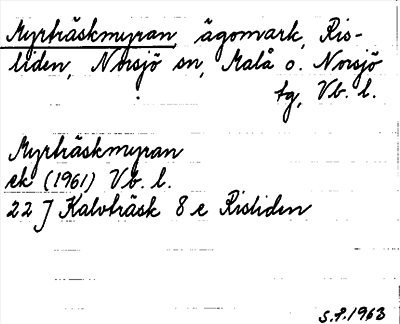 Myrträskmyran, ägomark, Ris-
liden, Norsjö sn, Malå o. Norsjö
tg, Vb. l.
Myrträskmyran
ek (1961) Vb. l.
22 J Kalvträsk 8 e Risliden
S.F. 1963